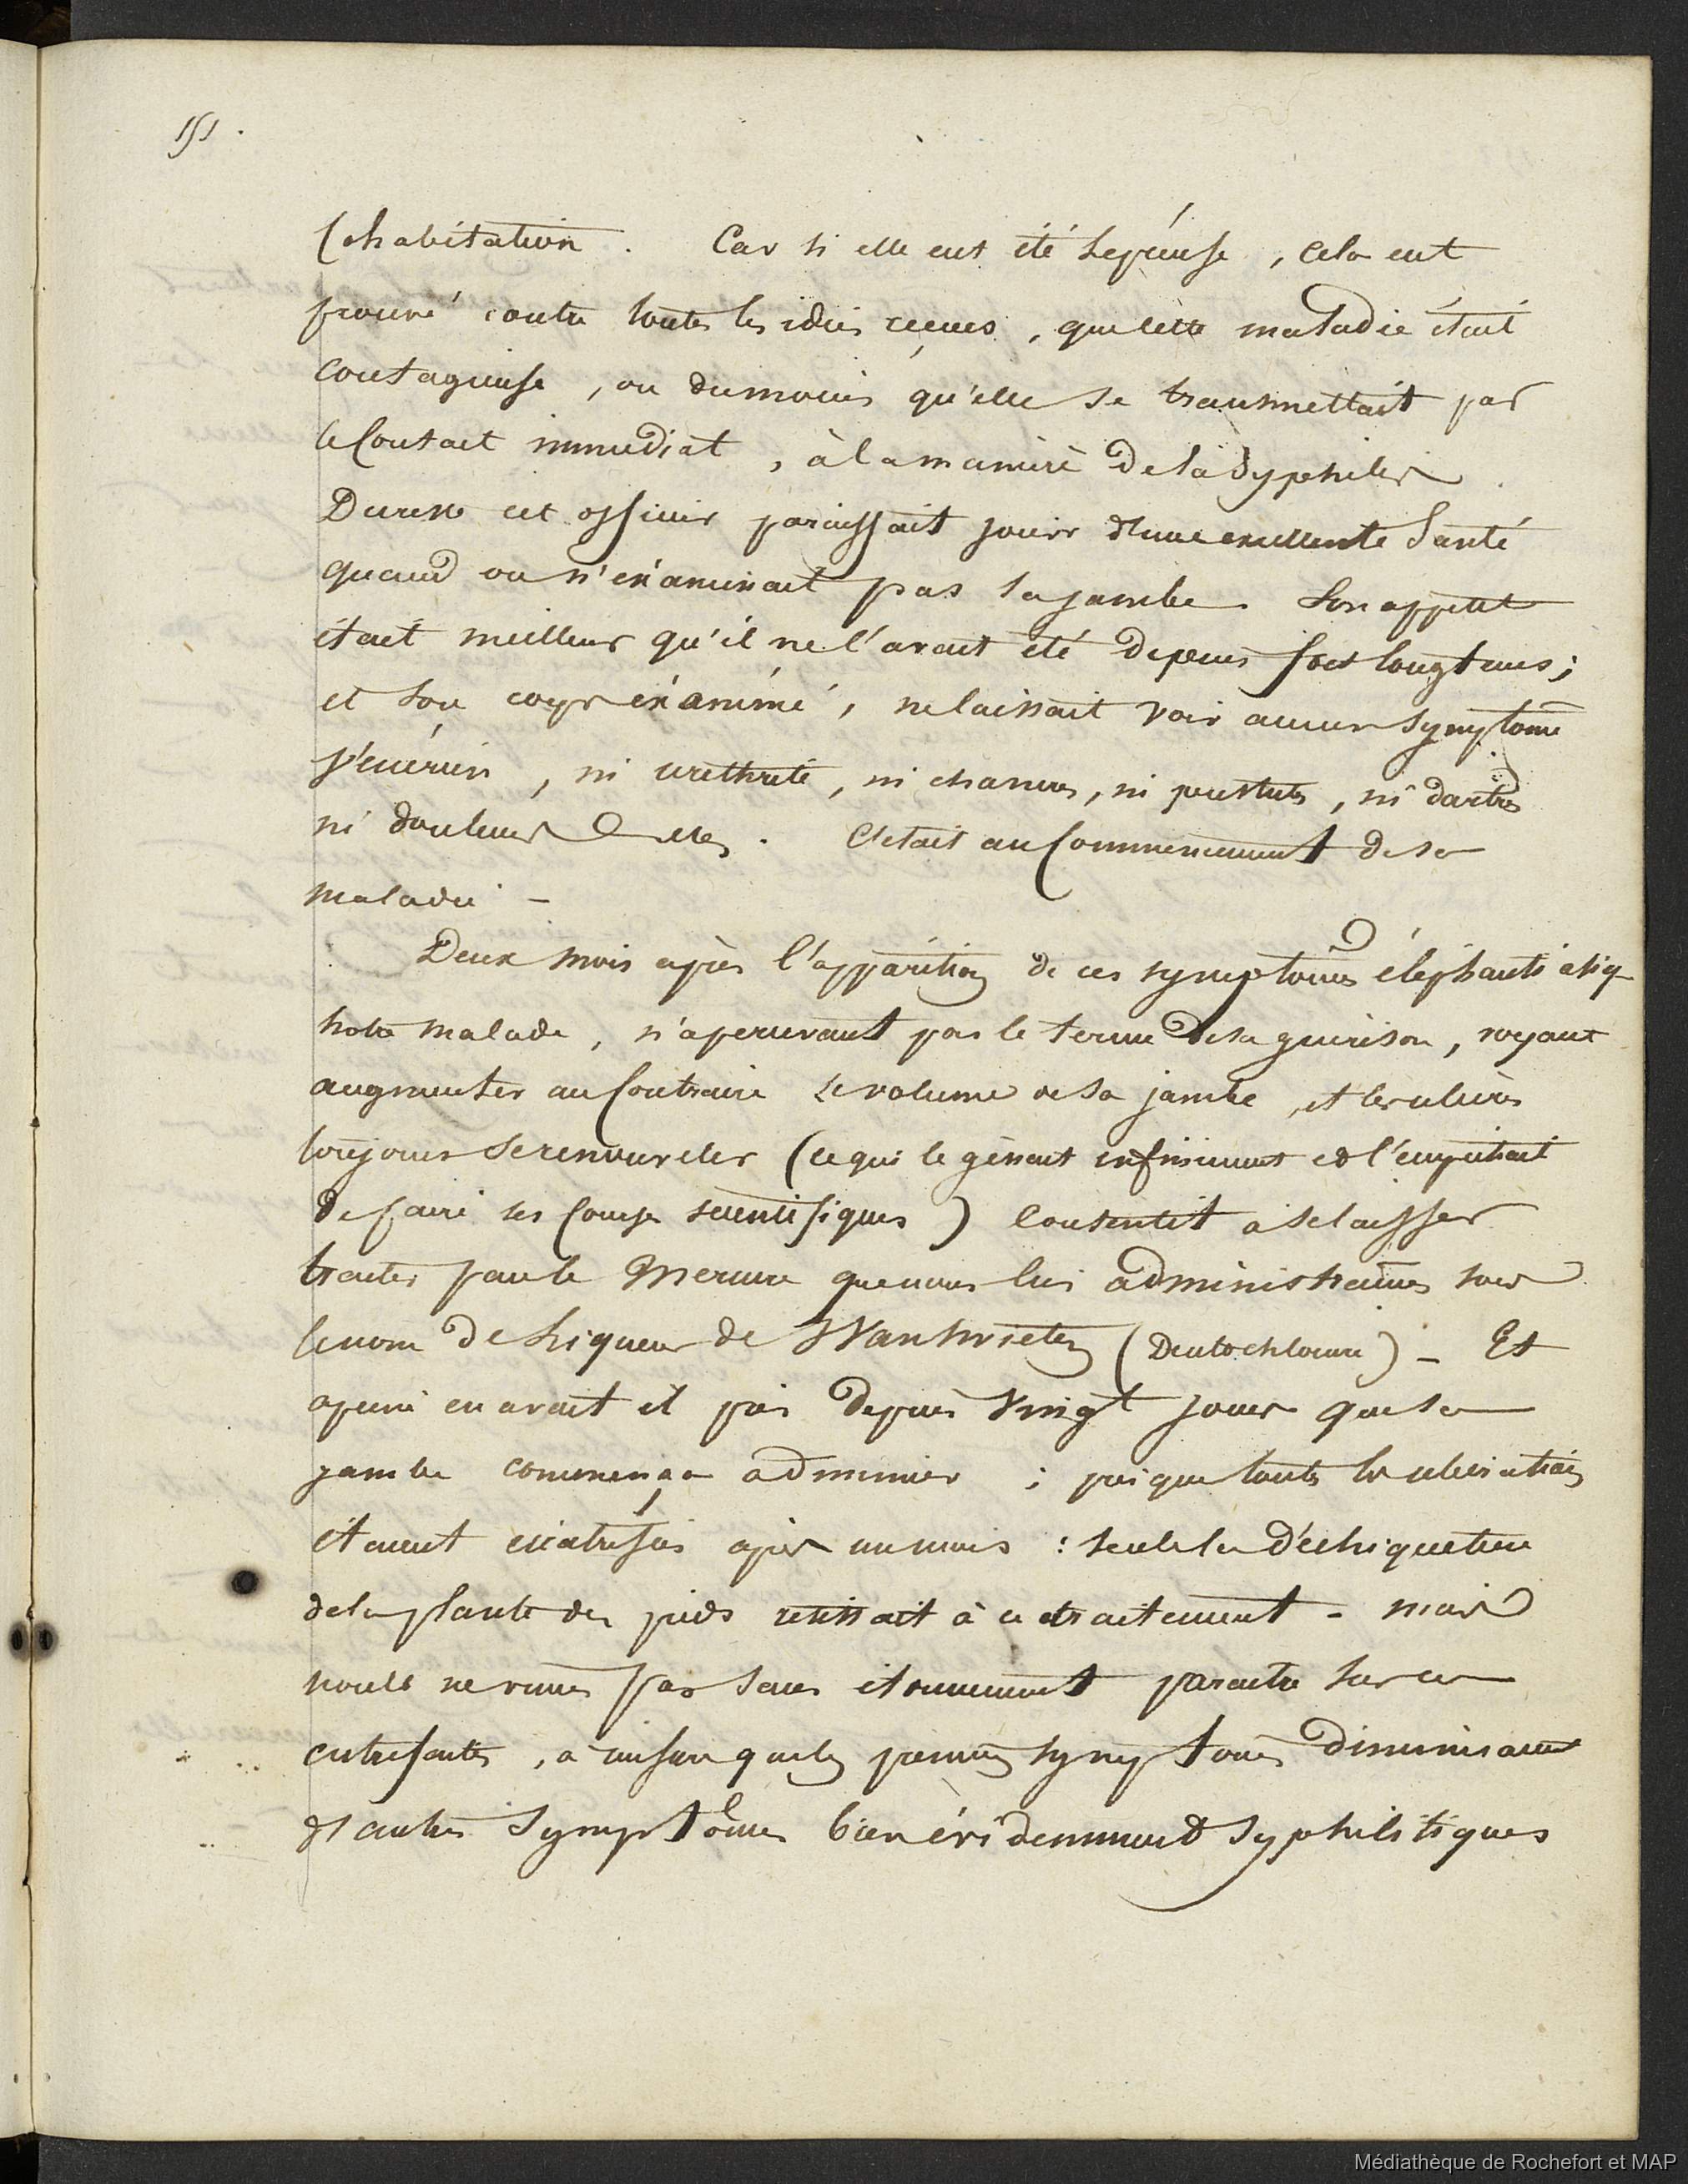 151.
Cohabitation. Car si elle eut été lépreuse, cela eut
prouvé contre toutes les idées reçues, que cette maladie était
contagieuse, ou dumoins qu'elle se transmettait par
le Contact immediat, à la maniere de la Syphilis.
Dureste cet officier paraissait jouir d'une excellente Santé
quand on n'examinait pas sa jambe. Son appetit
était meilleur qu'il ne l'avait été depuis fort longtems;
et son corps examiné, ne laissait voir aucun symptome
Vénérien, ni urethrite, ni chancres, ni pustules, ni dartres
ni douleurs. C'etait au Commencement de sa
maladie -
Deux mois après l'apparition de ces symptomes éléphantiasiq
notre malade, n'apercevant pas le terme de sa guerison, voyant
augmenter au Contraire le volume de sa jambe, et les ulcères
toujours se renouveler (ce qui le gênait infiniment et l'empechait
de faire ses Courses scientifiques) Consentit à se laisser
traiter par le Mercure que nous lui administrames sous
le nom de Liqueur de Wanswieten (Deutochlorure) - Et
apeine en avait il pris depuis Vingt jours que sa
jambe commença a diminuer; presque toutes les ulcérations
étaient cicatrisées après un mois: seule la déchiqueture
de la plante des pieds resistait à ce traitement - mais
nous ne vimes pas sans étonnement paraitre sur ces
entrefaites, a mesure que les premiers symptomes diminuaient
d'autres Symptômes bien évidemment Syphilitiques
Médiathèque de Rochefort et MAP